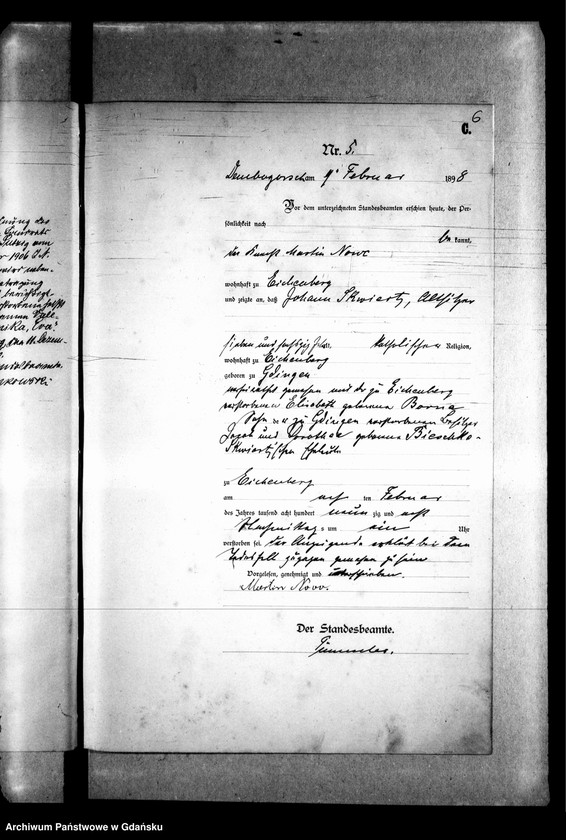 6
C.
Nr. 5.
Dembogorsch am 9. Februar 1898
Vor dem unterzeichneten Standesbeamten erschien heute, der Per-
sönlichkeit nach
be kannt,
der Martin Nowc
wohnhaft zu Eichenberg
und zeigte an, daß Johann Skwiertz, Altsitzer
sieben und sechszig Jahre, katholischer Religion,
wohnhaft zu Eichenberg
geboren zu Gdingen
verheirathet gewesen mit der zu Eichenberg
verstorbenen Elisabeth geborenen
Sohn der zu Gdingen verstorbenen Besitzer
Jacob und Dorothea geborenen Bieschke-
Skwiertz'schen Eheleute
zu Eichenberg
am acht ten Februar
des Jahres tausend acht hundert neun zig und acht
Nachmittags um ein Uhr
verstorben sei. Der Anzeigende erklärt bei dem
Todesfall zugegen gewesen zu sein
Vorgelesen, genehmigt und unterschrieben.
Martin Nowc.
Der Standesbeamte.
nung des
vom
1906
Eva
Archiwum Państwowe w Gdańsku